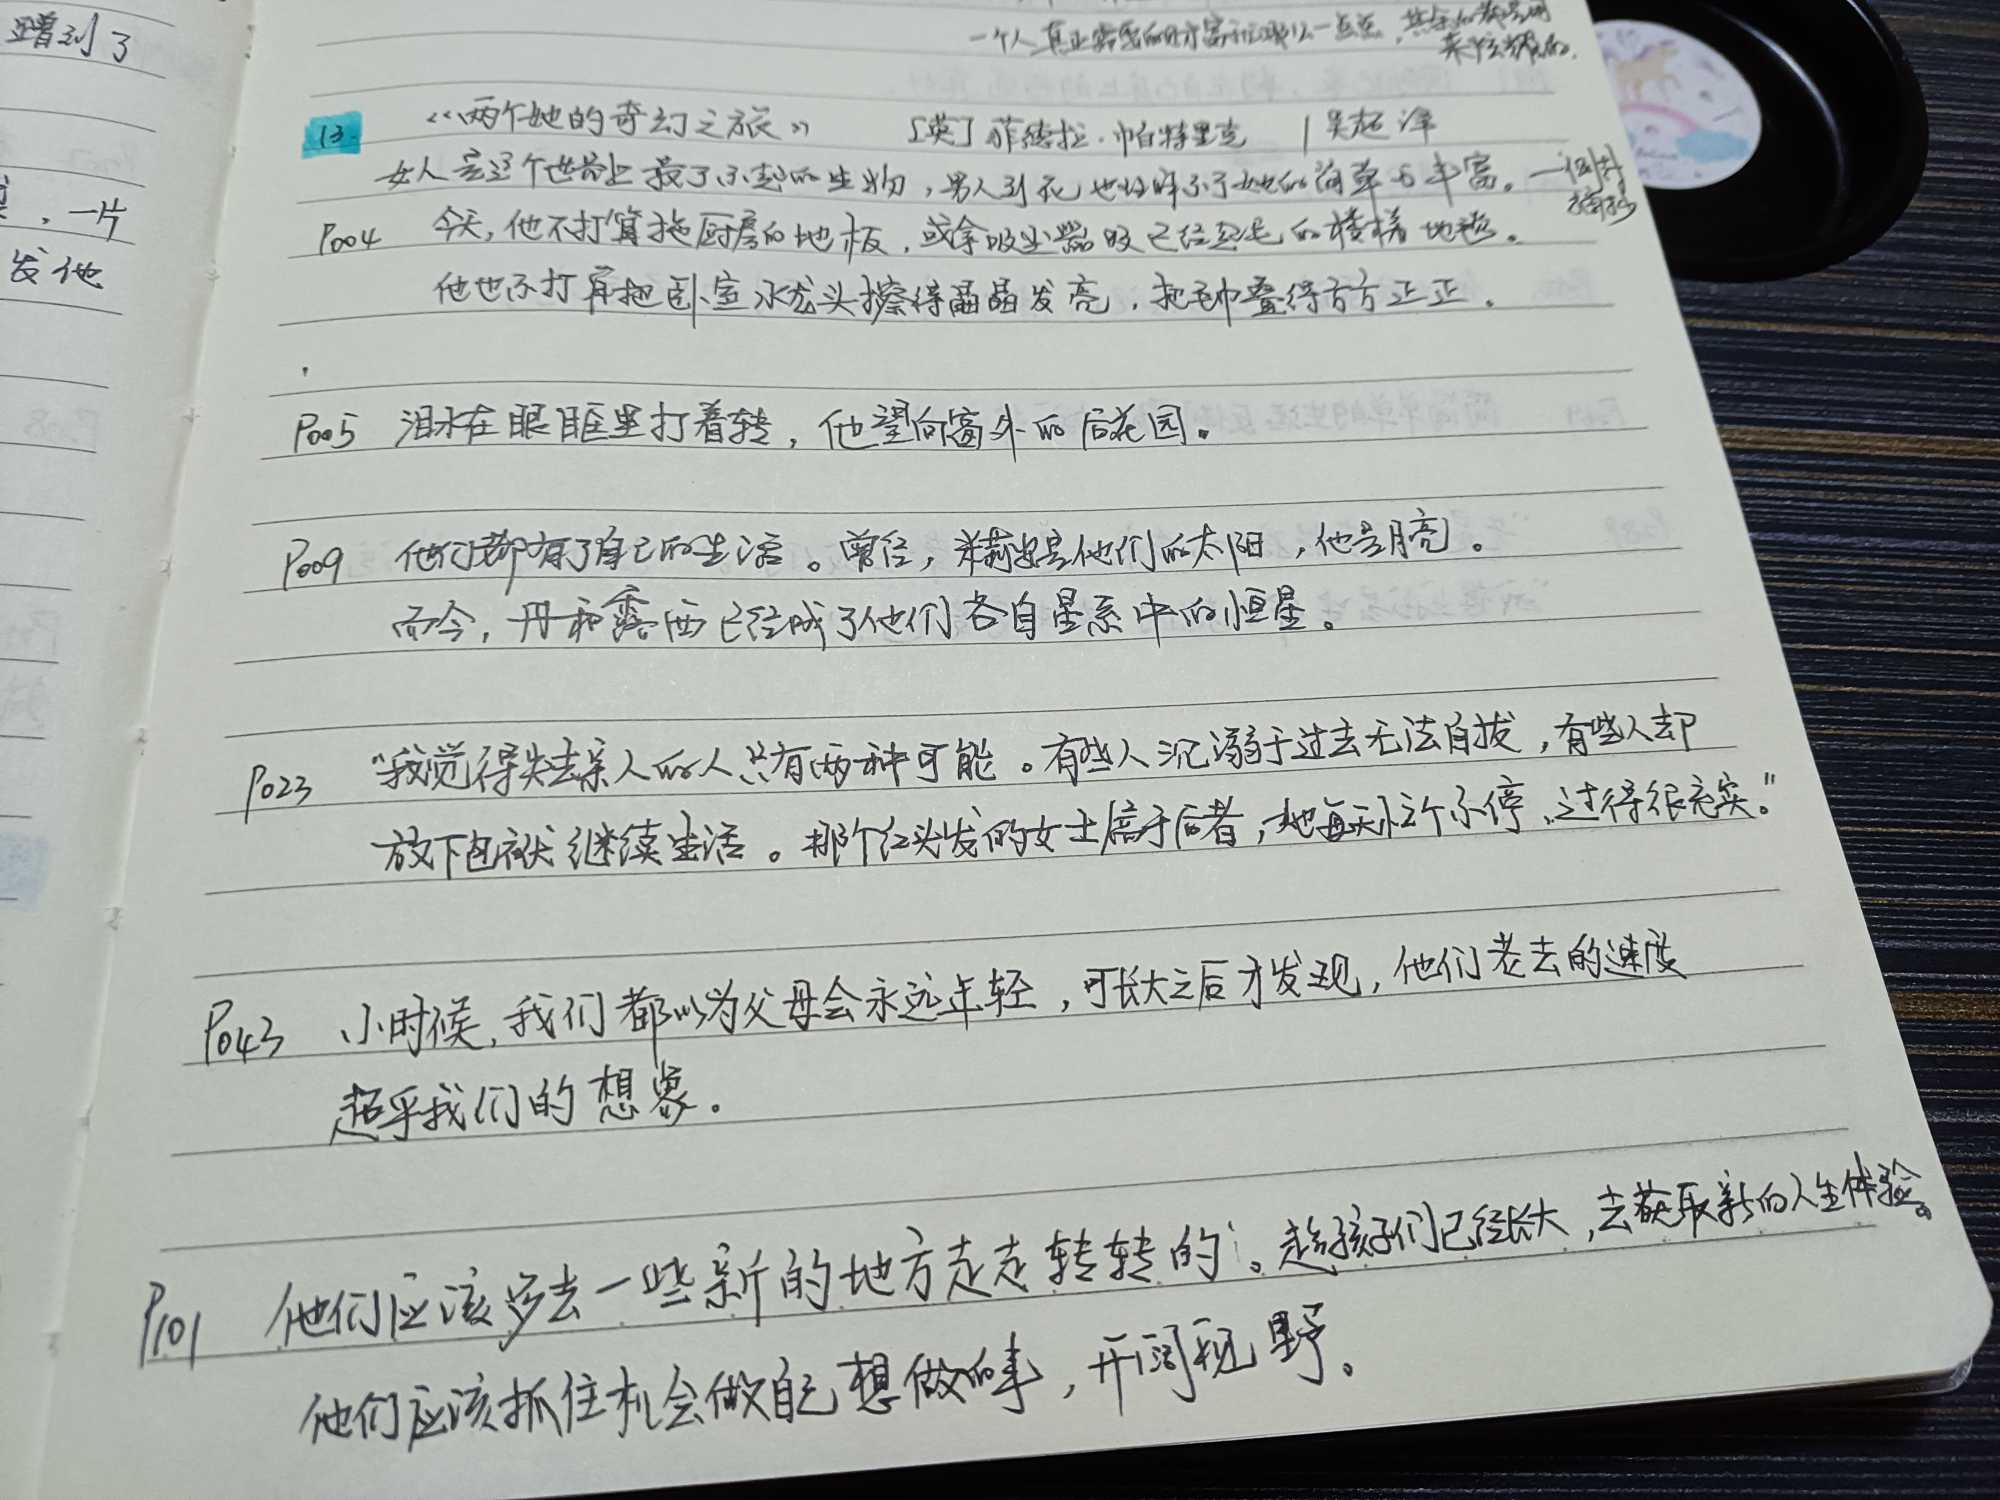 蹭到了
，一片
发他
一个人真正需要的财富就那么一点点，其余的都是用
来炫耀的。
13. 《两个她的奇幻之旅》 [英]菲德拉·帕特里克 | 吴超 译
女人是这个世界上最了不起的生物，男人到死也理解不了她的简单与丰富。一
P004 今天，他不打算拖厨房的地板，或拿吸尘器吸已经起毛的楼梯地毯。
他也不打算把卧室水龙头擦得晶晶发亮，把毛巾叠得方方正正。
P005 泪水在眼眶里打着转，他望向窗外的后花园。
P009 他们都有了自己的生活。曾经，米莉安是他们的太阳，他是月亮。
而今，丹和露西已经成了他们各自星系中的恒星。
P023 “我觉得失去亲人的人只有两种可能。有些人沉溺于过去无法自拔，有些人却
放下包袱继续生活。那个红头发的女士属于后者，她每天忙个不停，过得很充实。”
P043 小时候，我们都以为父母会永远年轻，可长大之后才发现，他们老去的速度
超乎我们的想象。
P101 他们应该多去一些新的地方走走转转的。趁孩子们已经长大，去获取新的人生体验。
他们应该抓住机会做自己想做的事，开阔视野。